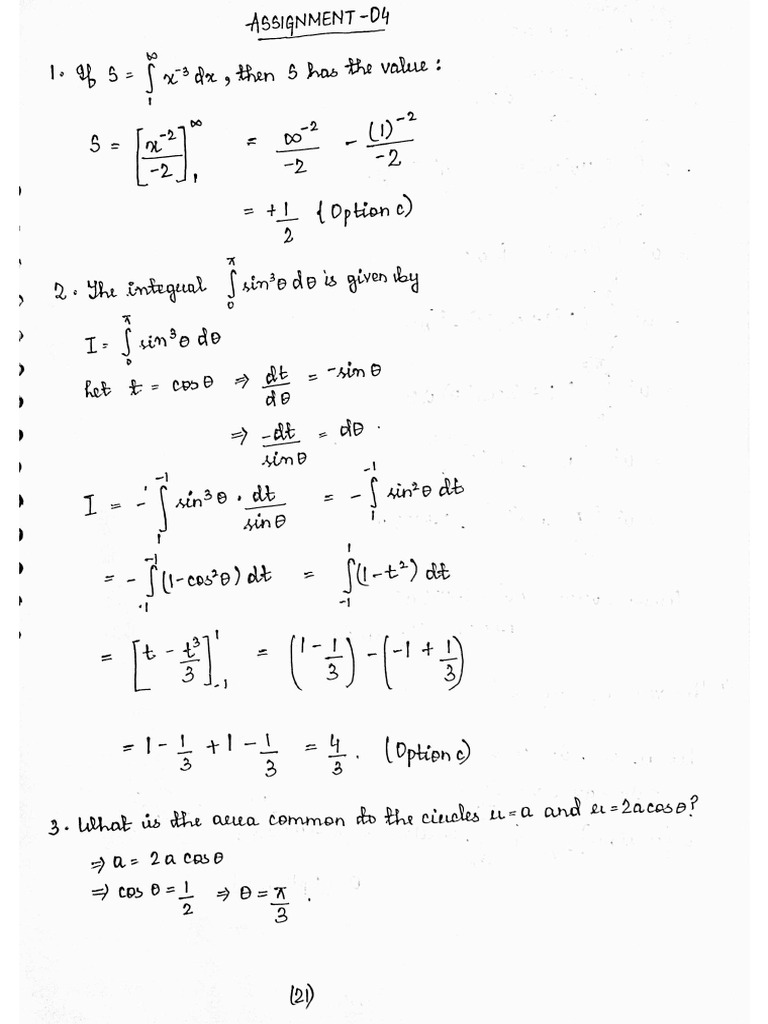 ASSIGNMENT-04
1. If S = ∫₁^∞ x⁻³ dx, then S has the value:
S = [x⁻²/-2]₁^∞ = ∞⁻²/-2 - (1)⁻²/-2
= +1/2 {Option c)
2. The integral ∫₀^π sin³θ dθ is given by
I = ∫₀^π sin³θ dθ
Let t = cosθ ⇒ dt/dθ = -sinθ
⇒ -dt/sinθ = dθ.
I = -∫₁^-1 sin³θ . dt/sinθ = -∫₁^-1 sin²θ dt
= -∫₁^-1 (1-cos²θ) dt = ∫₋₁^1 (1-t²) dt
= [t - t³/3]₋₁^1 = (1 - 1/3) - (-1 + 1/3)
= 1 - 1/3 + 1 - 1/3 = 4/3. (Option c)
3. What is the area common to the circles r=a and r=2acosθ?
⇒ a = 2a cosθ
⇒ cosθ = 1/2 ⇒ θ = π/3.
(21)